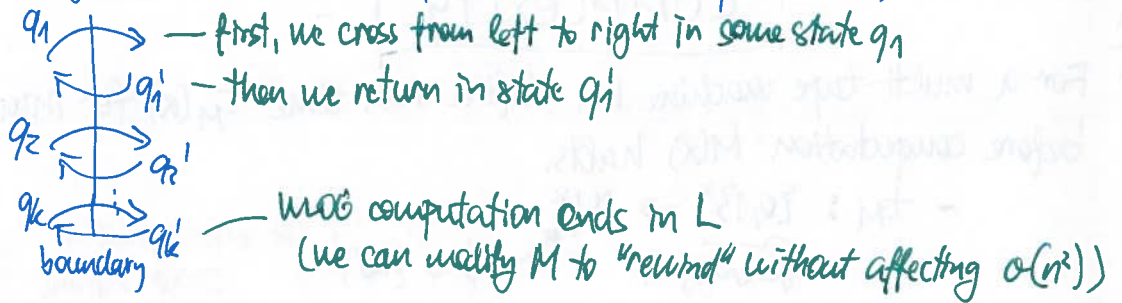 q1 — first, we cross from left to right in some state q1
q1' — then we return in state q1'
q2
q2'
qk
qk' — WLOG computation ends in L
boundary (we can modify M to "rewind" without affecting o(n²))